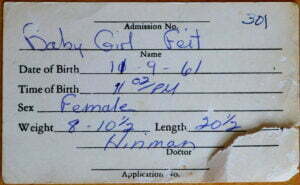 Admission No. 301
Baby Girl Feit
Name
Date of Birth 11-9-61
Time of Birth 1 02/PM
Sex Female
Weight 8-10½ Length 20½
Hinman
Doctor
Application No.